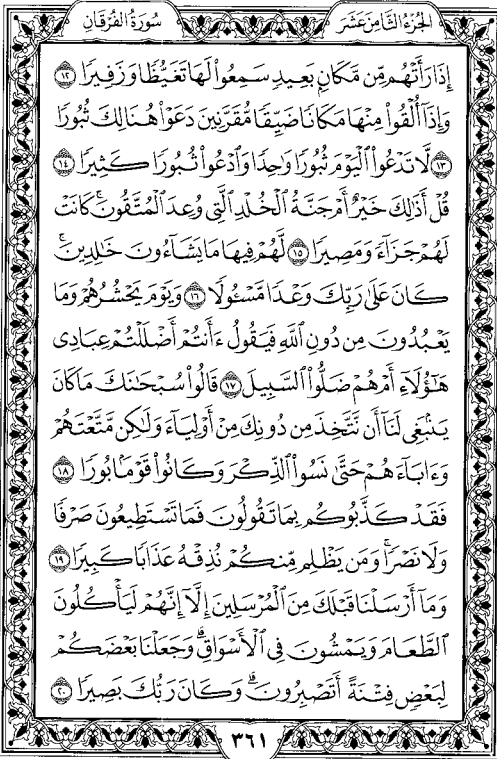 الجزء الثامن عشر سورة الفرقان
إِذَا رَأَتْهُم مِّن مَّكَانٍ بَعِيدٍ سَمِعُوا۟ لَهَا تَغَيُّظًا وَزَفِيرًا ١٢
وَإِذَآ أُلْقُوا۟ مِنْهَا مَكَانًا ضَيِّقًا مُّقَرَّنِينَ دَعَوْا۟ هُنَالِكَ ثُبُورًا
١٣ لَّا تَدْعُوا۟ ٱلْيَوْمَ ثُبُورًا وَٰحِدًا وَٱدْعُوا۟ ثُبُورًا كَثِيرًا ١٤
قُلْ أَذَٰلِكَ خَيْرٌ أَمْ جَنَّةُ ٱلْخُلْدِ ٱلَّتِى وُعِدَ ٱلْمُتَّقُونَ ۚ كَانَتْ
لَهُمْ جَزَآءً وَمَصِيرًا ١٥ لَّهُمْ فِيهَا مَا يَشَآءُونَ خَٰلِدِينَ ۚ
كَانَ عَلَىٰ رَبِّكَ وَعْدًا مَّسْـُٔولًا ١٦ وَيَوْمَ يَحْشُرُهُمْ وَمَا
يَعْبُدُونَ مِن دُونِ ٱللَّهِ فَيَقُولُ ءَأَنتُمْ أَضْلَلْتُمْ عِبَادِى
هَٰٓؤُلَآءِ أَمْ هُمْ ضَلُّوا۟ ٱلسَّبِيلَ ١٧ قَالُوا۟ سُبْحَٰنَكَ مَا كَانَ
يَنۢبَغِى لَنَآ أَن نَّتَّخِذَ مِن دُونِكَ مِنْ أَوْلِيَآءَ وَلَٰكِن مَّتَّعْتَهُمْ
وَءَابَآءَهُمْ حَتَّىٰ نَسُوا۟ ٱلذِّكْرَ وَكَانُوا۟ قَوْمًۢا بُورًا ١٨
فَقَدْ كَذَّبُوكُم بِمَا تَقُولُونَ فَمَا تَسْتَطِيعُونَ صَرْفًا
وَلَا نَصْرًا ۚ وَمَن يَظْلِم مِّنكُمْ نُذِقْهُ عَذَابًا كَبِيرًا ١٩
وَمَآ أَرْسَلْنَا قَبْلَكَ مِنَ ٱلْمُرْسَلِينَ إِلَّآ إِنَّهُمْ لَيَأْكُلُونَ
ٱلطَّعَامَ وَيَمْشُونَ فِى ٱلْأَسْوَاقِ ۗ وَجَعَلْنَا بَعْضَكُمْ
لِبَعْضٍ فِتْنَةً أَتَصْبِرُونَ ۗ وَكَانَ رَبُّكَ بَصِيرًا ٢٠
٣٦١